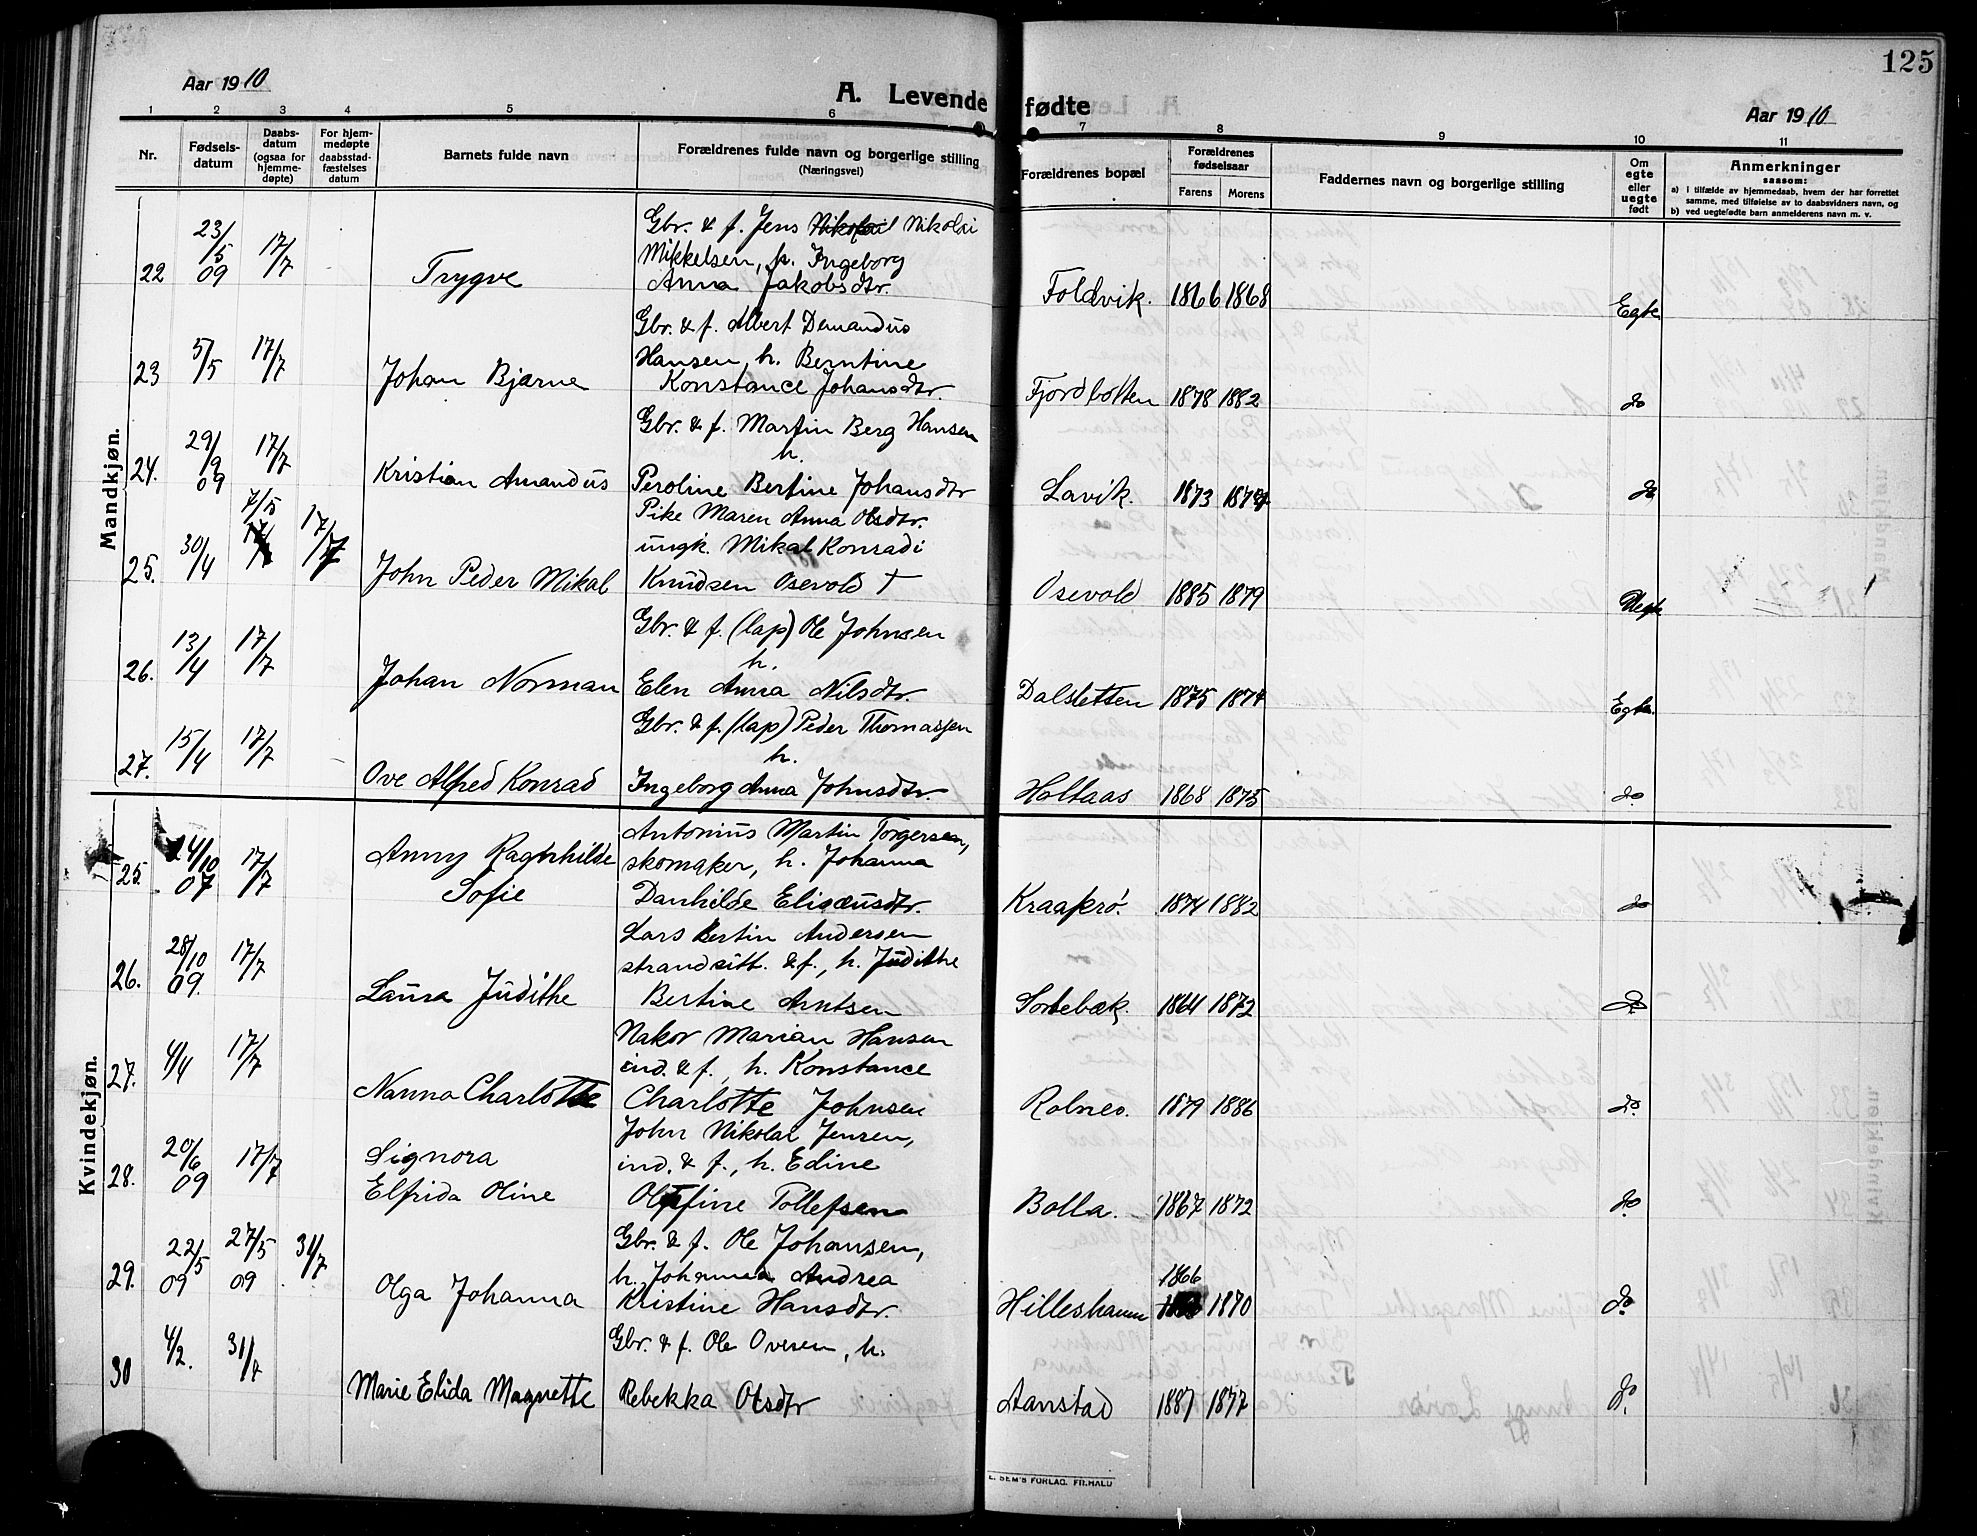 125
Aar 1910
A. Levende fødte
Aar 1910
1 2 3 4 5 6 7 8 9 10 11
Nr.
Fødsels-
datum
Daabs-
datum
(ogsaa for
hjemme-
døpte)
For hjem-
medøpte
daabsstad-
fæstelses
datum
Barnets fulde navn
Forældrenes fulde navn og borgerlige stilling
(Næringsvei)
Forældrenes bopæl
Forældrenes
fødselsaar
Farens Morens
Faddernes navn og borgerlige stilling
Om
egte
eller
uegte
født
Anmerkninger
saasom:
a) i tilfælde av hjemmedaab, hvem der har forrettet
samme, med tilføielse av to daabsvidners navn, og
b) ved uegtefødte barn anmelderens navn m. v.
Mandkjøn.
22 23/5 09 17/7 Trygve
Gbr. & f. Jens Nikolai Nikolai
Mikkelsen, h. Ingeborg
Anna Jakobsdtr.
Foldvik. 1866 1868 Egte
23 5/5 17/7 Johan Bjarne
Gbr. & f. Albert Demandus
Hansen, h. Berntine
Konstance Johansdtr.
Fjordbotten 1878 1882 do
24. 29/9 09 17/7 Kristian Amandus
Gbr. & f. Martin Berg Hansen
h.
Peroline Bertine Johansdtr
Lavik. 1873 do
25. 30/4 7/5 17/7 John Peder Mikal
Pike Maren Anna Olsdtr.
ungk. Mikal Konradi
Knudsen Osevold †
Osevold 1885 1879 Uegte
26. 13/4 17/7 Johan Norman
Gbr. & f. (lap) Ole Johnsen
h.
Elen Anna Nilsdtr.
Dalsletten 1875 1874 Egte.
27. 15/4 17/7 Ove Alfred Konrad
Gbr. & f. (lap) Peder Thomassen
h.
Ingeborg Anna Johnsdtr.
Holtaas 1868 1875 do
Kvindekjøn.
25 24/10 07 17/7 Anny Ragnhilde
Sofie
Antonius Martin Torgersen,
skomaker, h. Johanna
Danhilde Elisæusdtr.
Kraakrø. 1874 1882 do
26. 28/10 09. 17/7 Laura Judithe
Lars Bertin Andersen
strandsitt. & f., h. Judithe
Bertine Arntsen
Sortebæk. 1864 1872 do
27. 4/4 17/7 Nanna Charlotte
Nakor Marian Hansen
ind. & f., h. Konstance
Charlotte Johnsen
Rolnes. 1879 1886 do.
28. 20/6 09 17/7 Signora
Elfrida Oline
John Nikolai Jensen,
ind. & f., h. Edine
Olefine Tollefsen
Bolla. 1867 1872 do
29. 22/5 09 27/5 09 31/7 Olga Johanna
Gbr. & f. Ole Johansen,
h. Johanna Andrea
Kristine Hansdtr.
Hilleshamn 1866 1870 do.
30 4/2. 31/7 Marie Elida Magnette
Gbr. & f. Ole Ovesen, h.
Rebekka Olsdtr
Aanstad 1887 1877 do.
E. SEM'S FORLAG, FR.HALD